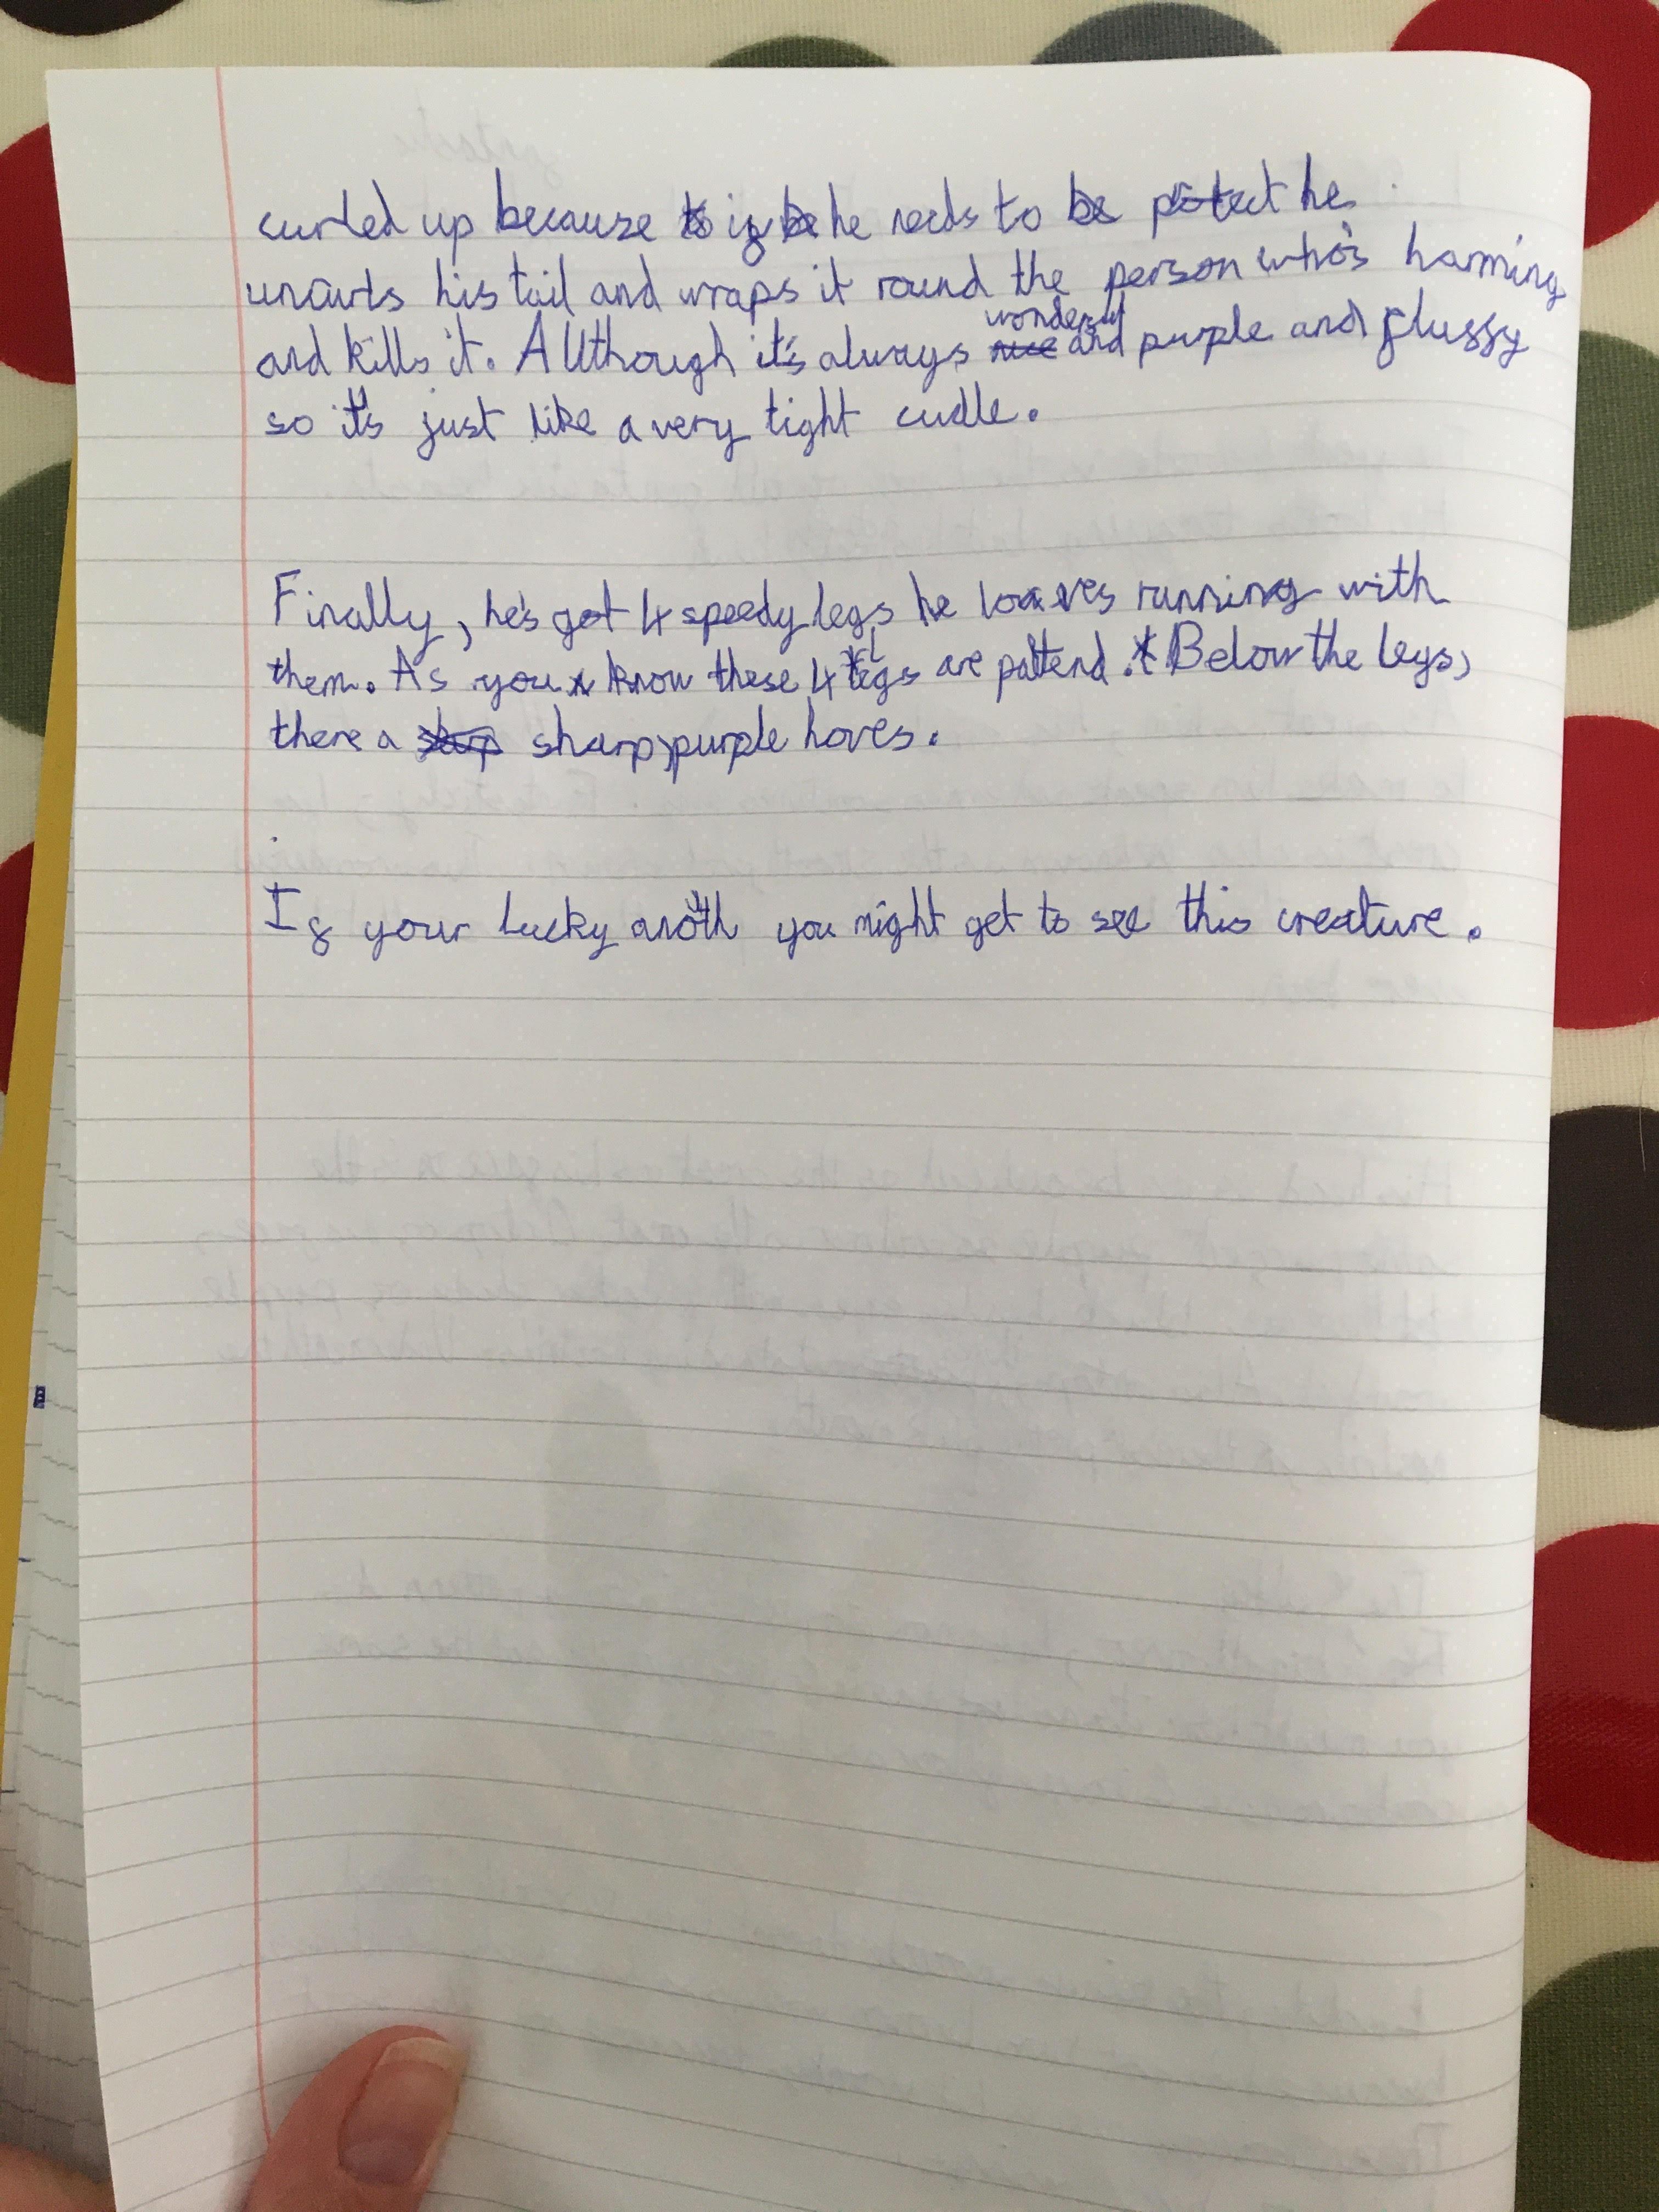 curled up because if he needs to protect he
uncurls his tail and wraps it round the person who's harming
and kills it. Allthough it's always wonderful and purple and fluffy
so it's just like a very tight cudle.
Finally, he's got 4 speedy legs he loves running with
them. As you know these 4 legs are pattend. Below the legs,
there a sharp, purple hoves.
If your lucky you might get to see this creature.